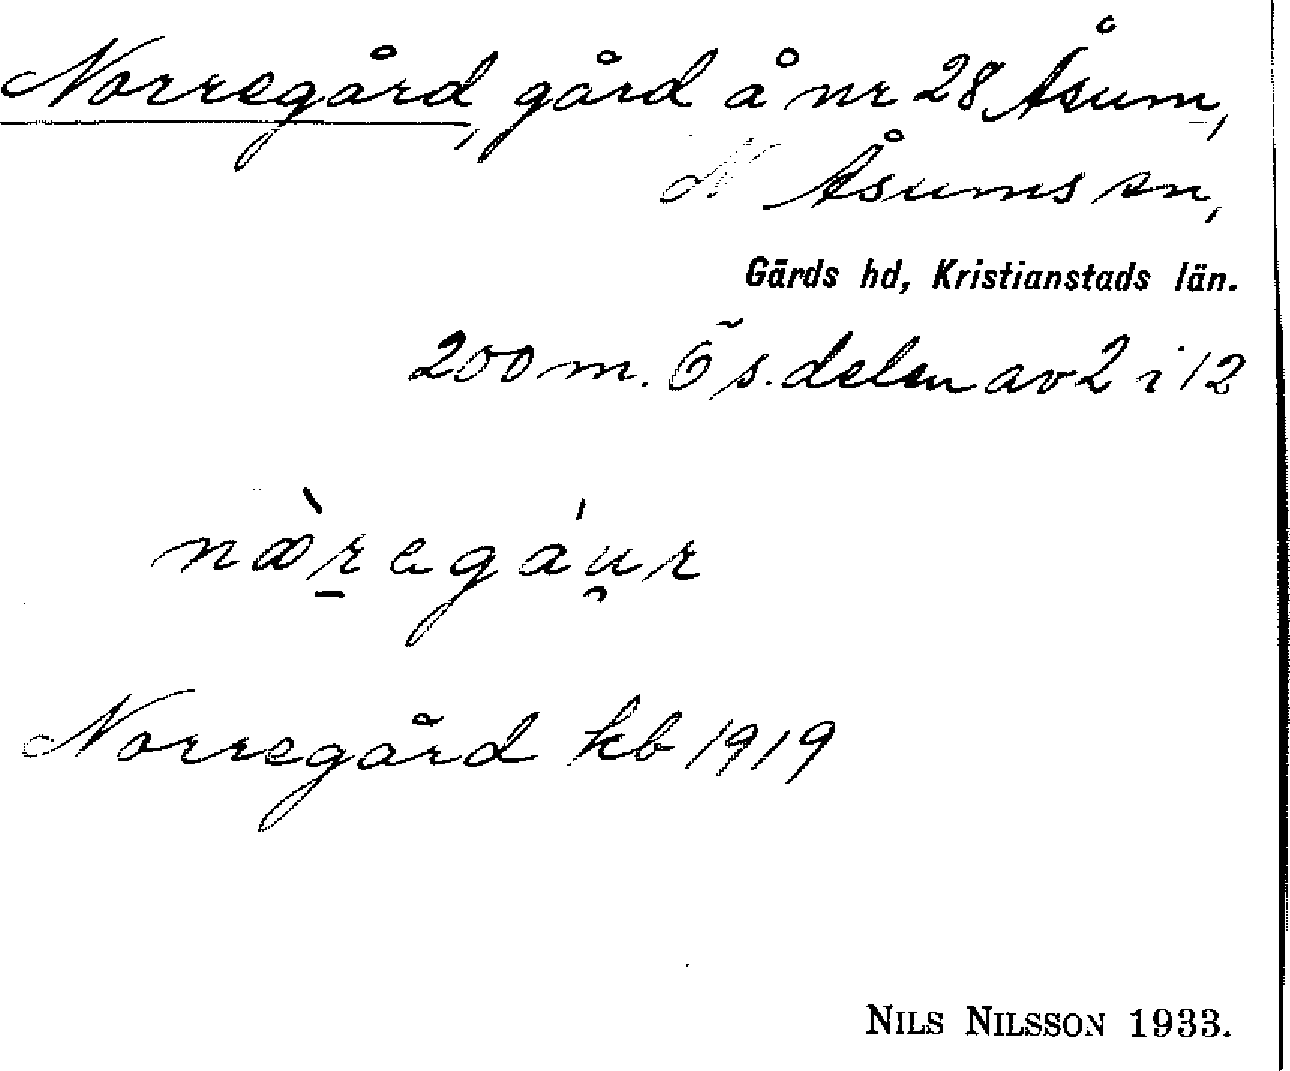 Norregård, gård å nr 28 Åsum,
N Åsums sn,
Gärds hd, Kristianstads län.
200 m. Ö s. delen av 2 i 12
næ̀r̠egáu̯r
Norregård kb 1919
NILS NILSSON 1933.